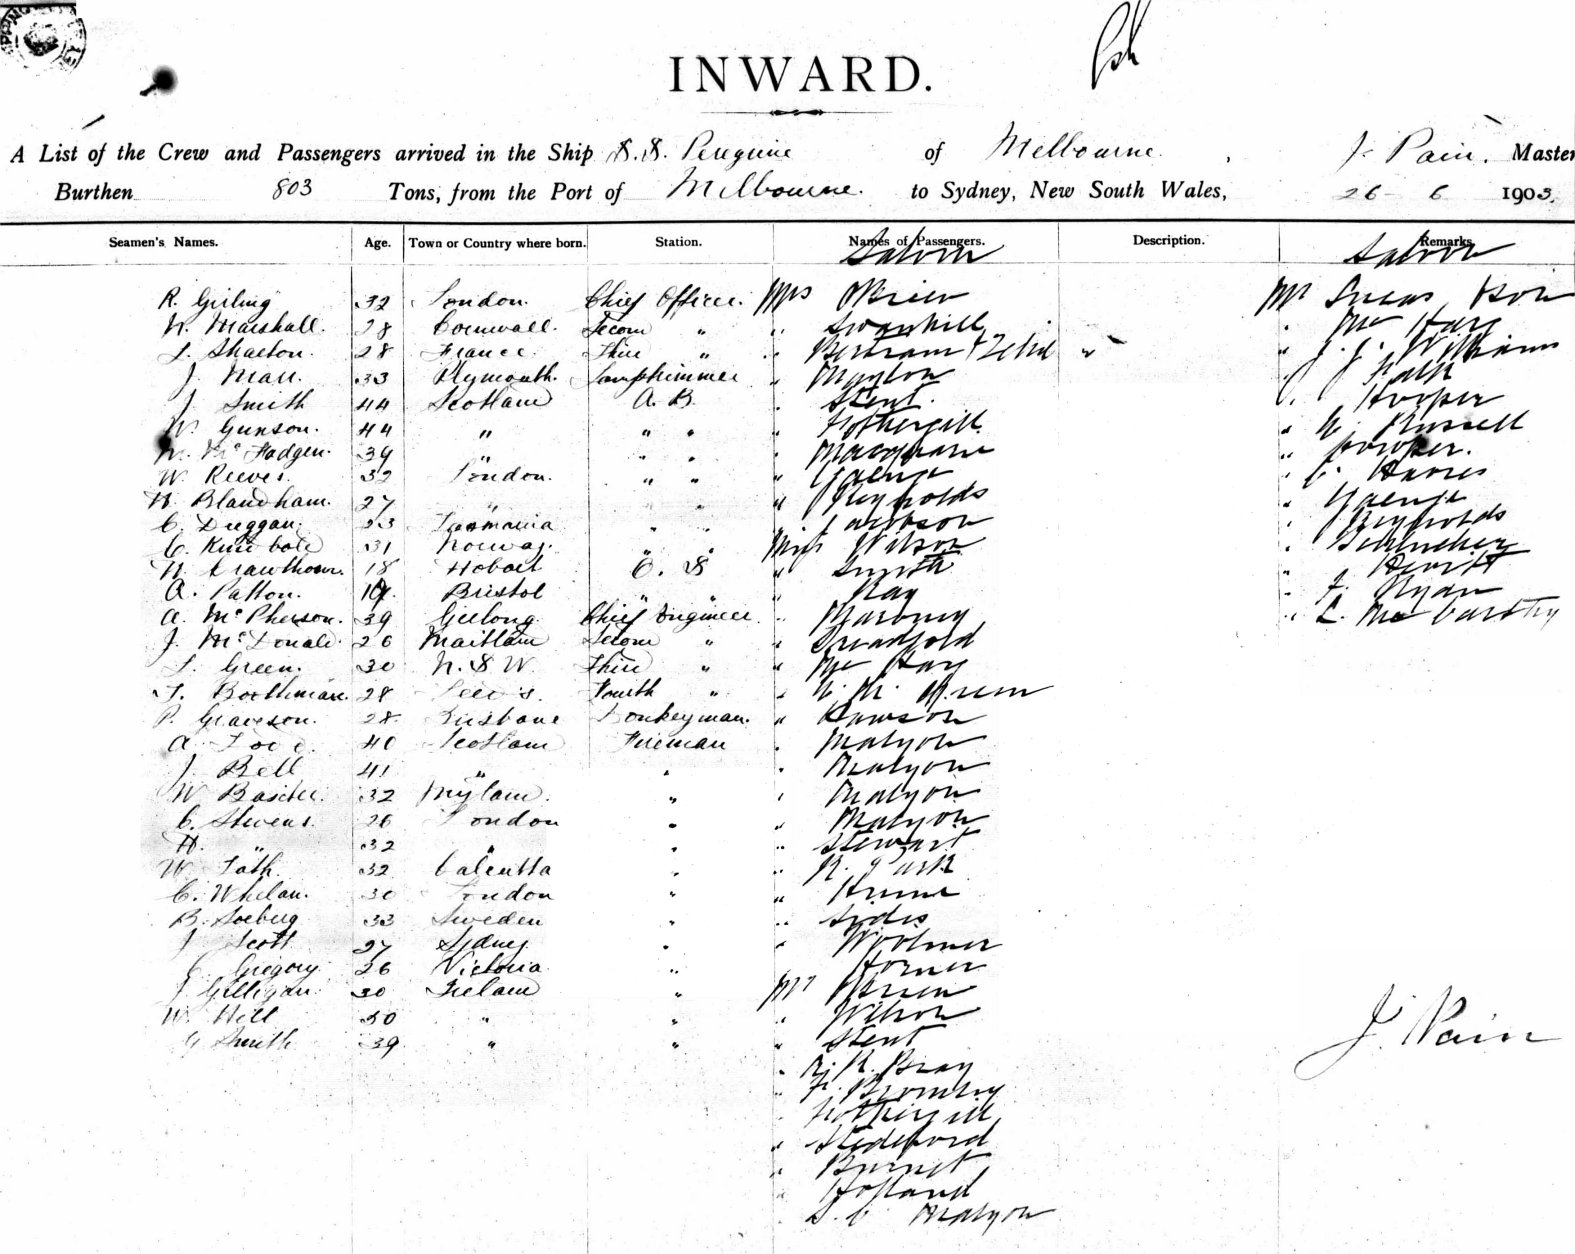 INWARD.
A List of the Crew and Passengers arrived in the Ship S.S. Peregrine of Melbourne, J. Pain. Master
Burthen 803 Tons, from the Port of Melbourne. to Sydney, New South Wales, 26 - 6 1903.
Seamen's Names. Age. Town or Country where born. Station. Names of Passengers. Description. Remarks
Saloon Saloon
R. Girling 32 London. Chief Officer. Mrs O'Brien Mr Lucas
N. Marshall. 28 Cornwall. Second " " Swanhill " Mc Hay
L. Shaeton. 28 France. Third " " Bertram & " J. J. Williams
J. Marr. 33 Plymouth. Lamptrimmer " Maylon " Falk
J Smith 44 Scotland A. B. " Stent. " Hooper
W. Gunson. 44 " " " " Fothergill. " W. Russell
M. McFadgen. 39 " " " " Macquarie " Cowper.
W. Reeves. 32 London. " " " "
H. Blandham. 27 " " " " Reynolds "
C. Duggan. 23 Tasmania " " " Jacobson " Reynolds
C. 31 Norway. " " Miss Wilson "
H. Crawthorn. 18 Hobart O. S " Smith " Hewitt
A. Patton. 19. Bristol " " " Kay " F. Ryan
A. McPherson. 39 Geelong Chief Engineer. " " L. McCarthy
J. McDonald 26 Maitland Second " " Bradford
L. Green. 30 N. S W. Third " " Mc Kay
T. Boothman. 28 Leeds. Fourth " "
P. Graveson. 28 Brisbane Donkeyman. " Dawson
A. 40 Scotland Fireman " Malyon
J. Bell 41 " " " Malyon
W Baxter. 32 " " Malyon
C. Stevens. 26 London " " Malyon
H. " 32 " " " Stewart
W. Tath. 32 Calcutta " " R. Park
C. Whelan. 30 London " " Hume
B. Soeberg 33 Sweden " "
J Scott 27 Sydney " " Woolmer
C. Gregory 26 Victoria " Horner
J Gilligan. 30 Ireland " Mr O'Brien
W. Hill 30 " " " Wilson
G Smith 39 " " " Stent
J. Pain
" R. R. Bray
" F. Bromley
" Fothergill
" Stedeford
" Burnet
" Holland
" S. C. Malyon